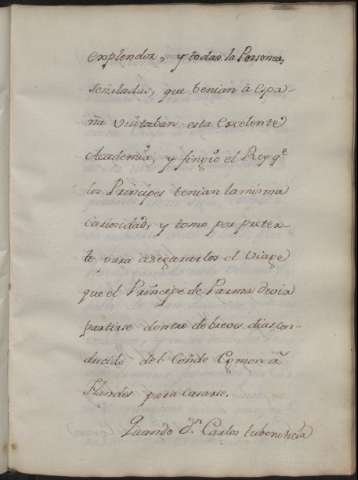 explendor, y todas las Personas
señaladas, que benian à Espa-
ña visitaban esta Excelente
Academia, y fingió el Rey q.e
los Principes tenian la misma
curiosidad, y tomo por pretex-
to para asegurarlos el Viage
que el Principe de Parma devia
partirse dentro de breves dias con-
ducido del Conde Egmon à
Flandes para casarse.
Quando D.n Carlos tubo noticia